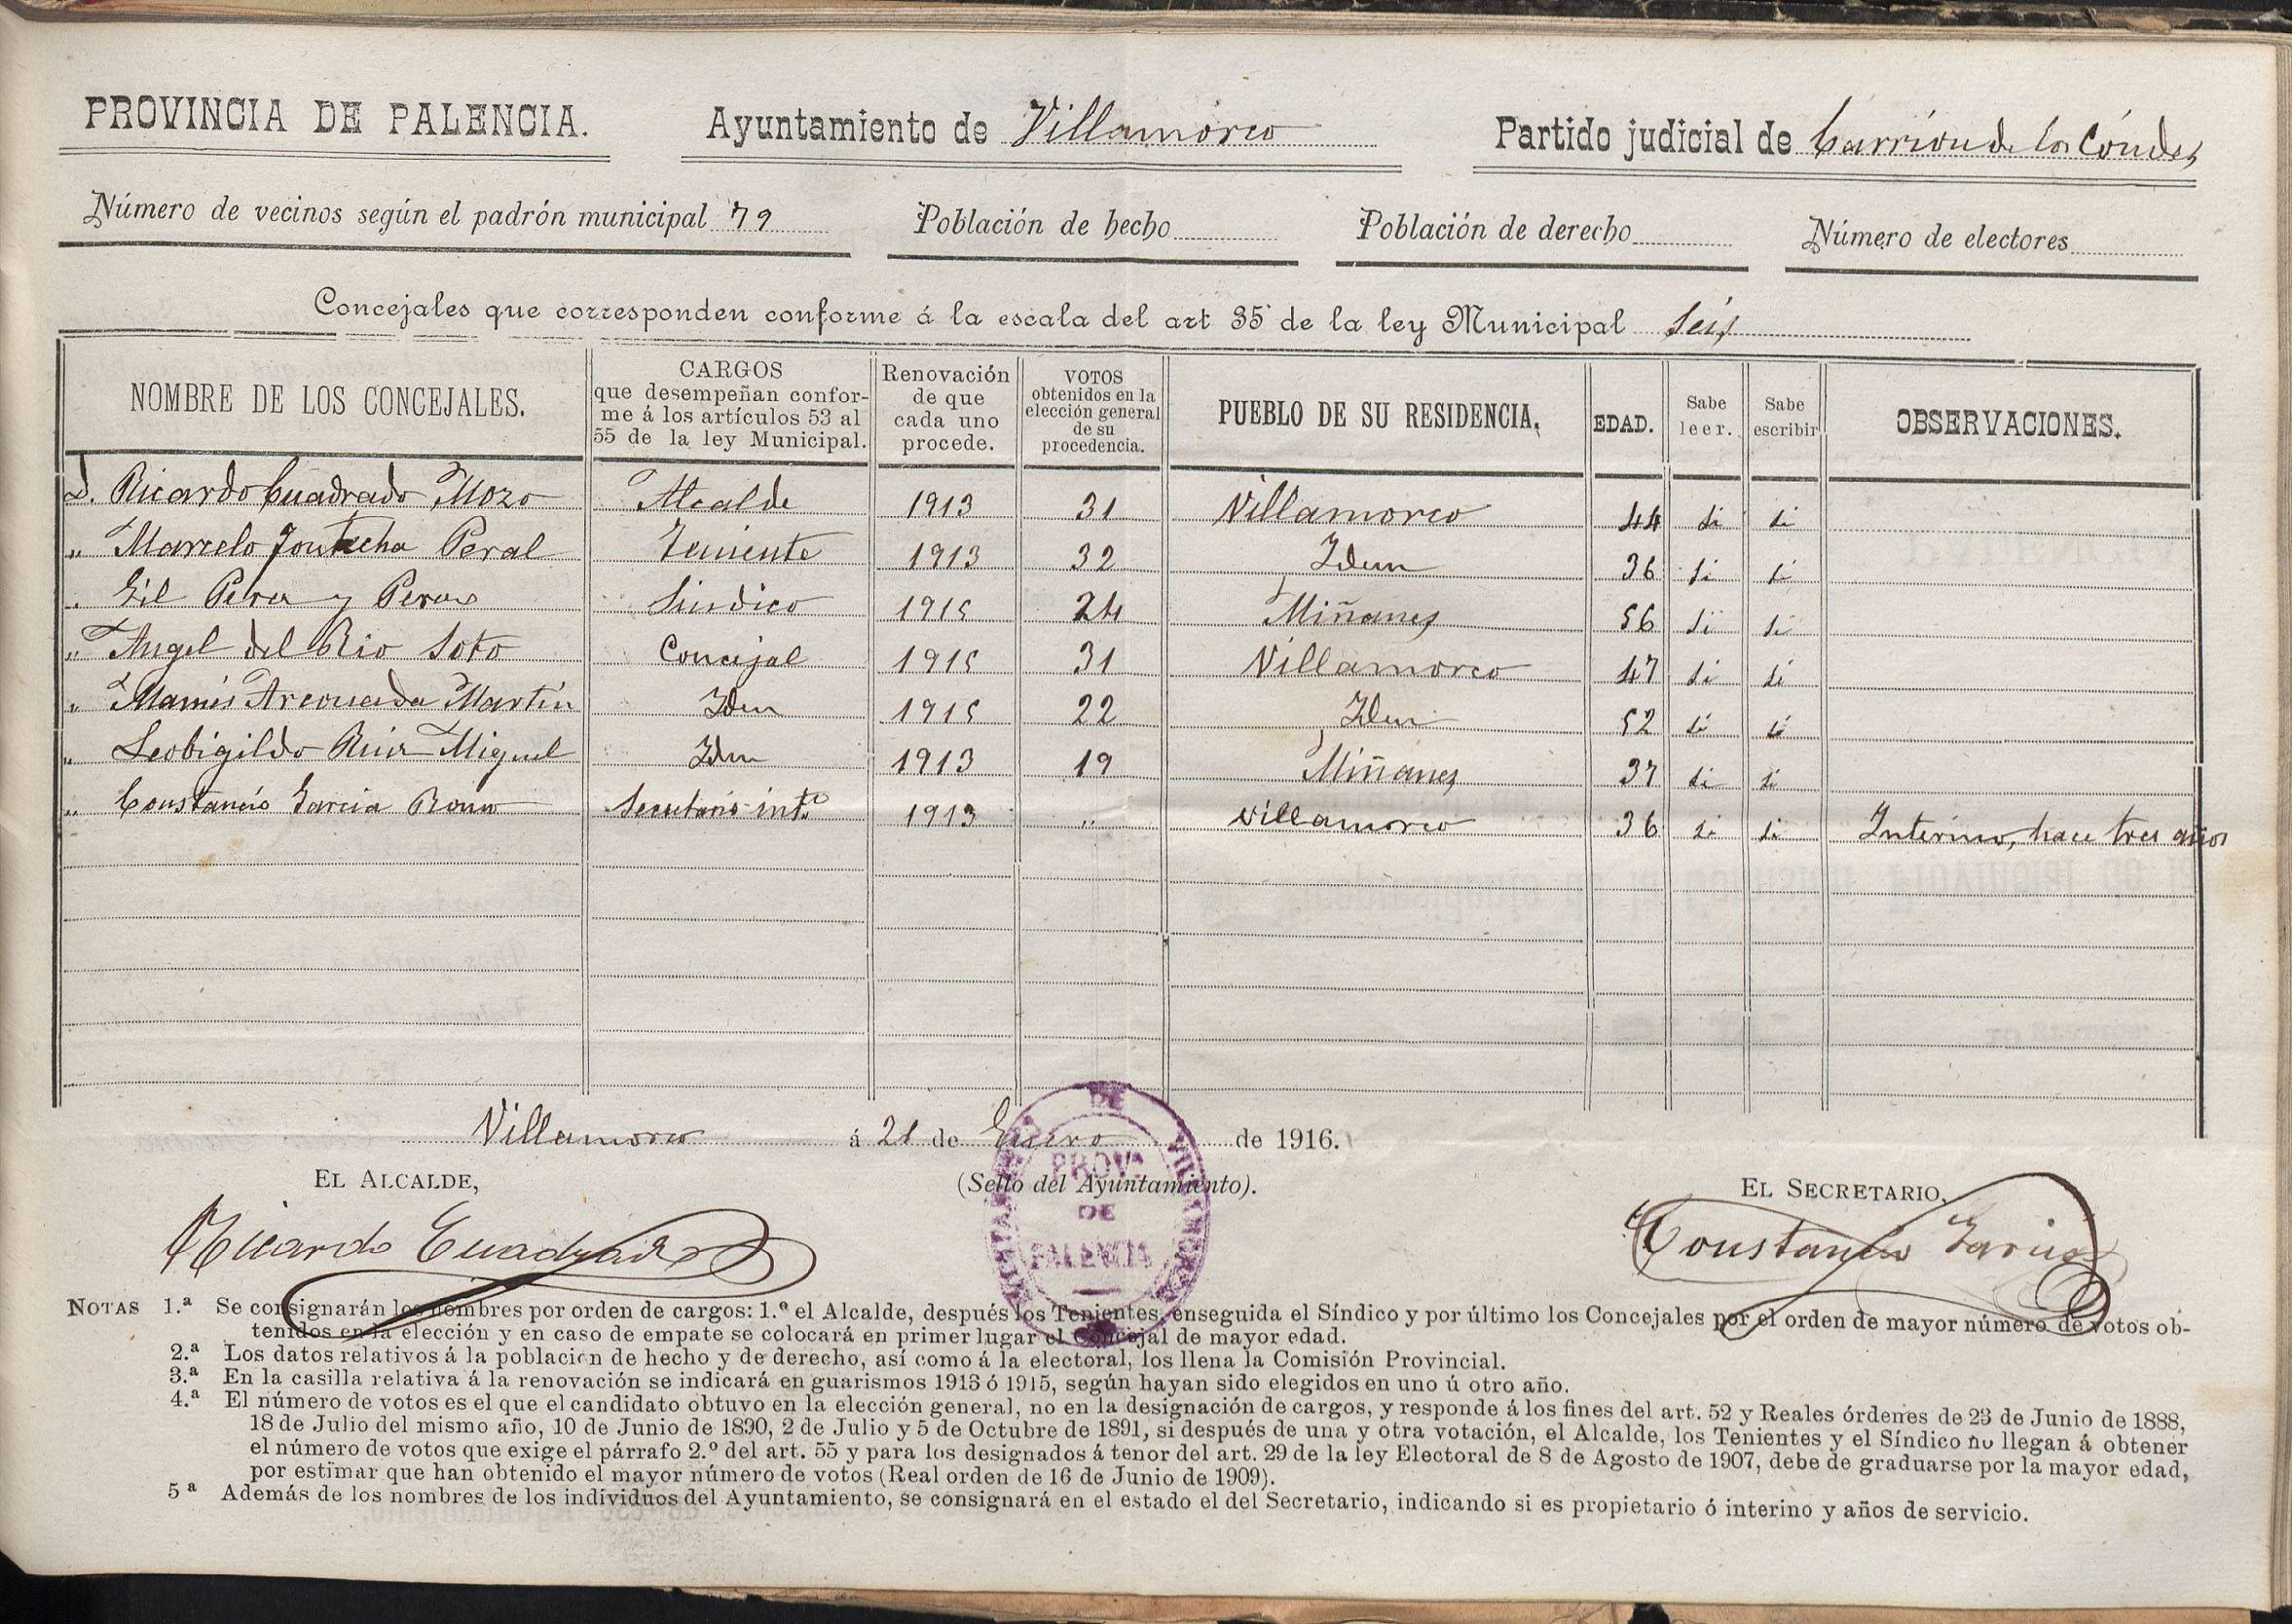 PROVINCIA DE PALENCIA. Ayuntamiento de Villamorco Partido judicial de Carrion de los Cóndes
Número de vecinos según el padrón municipal 79 Población de hecho Población de derecho Número de electores
Concejales que corresponden conforme á la escala del art 35 de la ley Municipal seis
NOMBRE DE LOS CONCEJALES. CARGOS que desempeñan confor-me á los artículos 53 al 55 de la ley Municipal. Renovación de que cada uno procede. VOTOS obtenidos en la elección general de su procedencia. PUEBLO DE SU RESIDENCIA. EDAD. Sabe leer. Sabe escribir OBSERVACIONES.
D. Ricardo Cuadrado Mozo Alcalde 1913 31 Villamorco 44 si si
" Marcelo Peral Teniente 1913 32 Idem 36 si si
" Gil Perez y Perez Sindico 1915 24 Miñanes 56 si si
" Angel del Rio Soto Concejal 1915 31 Villamorco 47 si si
" Mamés Arconada Martín Idem 1915 22 Idem 52 si si
" Leobigildo Ruiz Miguel Idem 1913 19 Miñanes 37 si si
" Constancio Garcia Secretario intº 1913 " Villamorco 36 si si Interino, hace tres años
Villamorco á 21 de Enero de 1916.
EL ALCALDE, (Sello del Ayuntamiento). EL SECRETARIO,
Ricardo Cuadrado Constancio Garcia
DE
PROVª
DE
PALENCIA
NOTAS 1.ª Se consignarán los nombres por orden de cargos: 1.º el Alcalde, después los Tenientes, enseguida el Síndico y por último los Concejales por el orden de mayor número de votos ob-
tenidos en la elección y en caso de empate se colocará en primer lugar el Concejal de mayor edad.
2.ª Los datos relativos á la población de hecho y de derecho, así como á la electoral, los llena la Comisión Provincial.
3.ª En la casilla relativa á la renovación se indicará en guarismos 1913 ó 1915, según hayan sido elegidos en uno ú otro año.
4.ª El número de votos es el que el candidato obtuvo en la elección general, no en la designación de cargos, y responde á los fines del art. 52 y Reales órdenes de 23 de Junio de 1888,
18 de Julio del mismo año, 10 de Junio de 1890, 2 de Julio y 5 de Octubre de 1891, si después de una y otra votación, el Alcalde, los Tenientes y el Síndico no llegan á obtener
el número de votos que exige el párrafo 2.º del art. 55 y para los designados á tenor del art. 29 de la ley Electoral de 8 de Agosto de 1907, debe de graduarse por la mayor edad,
por estimar que han obtenido el mayor número de votos (Real orden de 16 de Junio de 1909).
5 ª Además de los nombres de los indivíduos del Ayuntamiento, se consignará en el estado el del Secretario, indicando si es propietario ó interino y años de servicio.